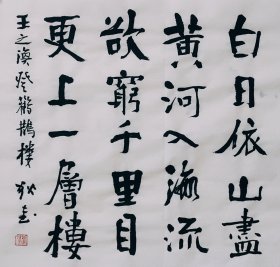 白日依山盡
黄河入海流
欲窮千里目
更上一層樓
王之渙登鸛鵲樓